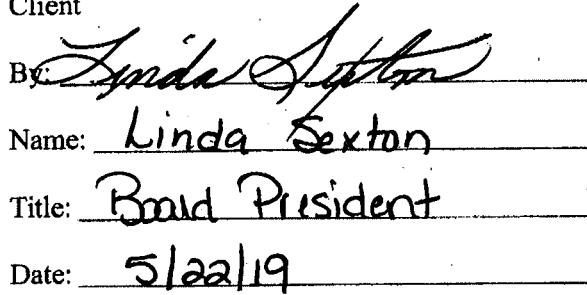 Client
By: Linda Sexton
Name: Linda Sexton
Title: Board President
Date: 5/22/19